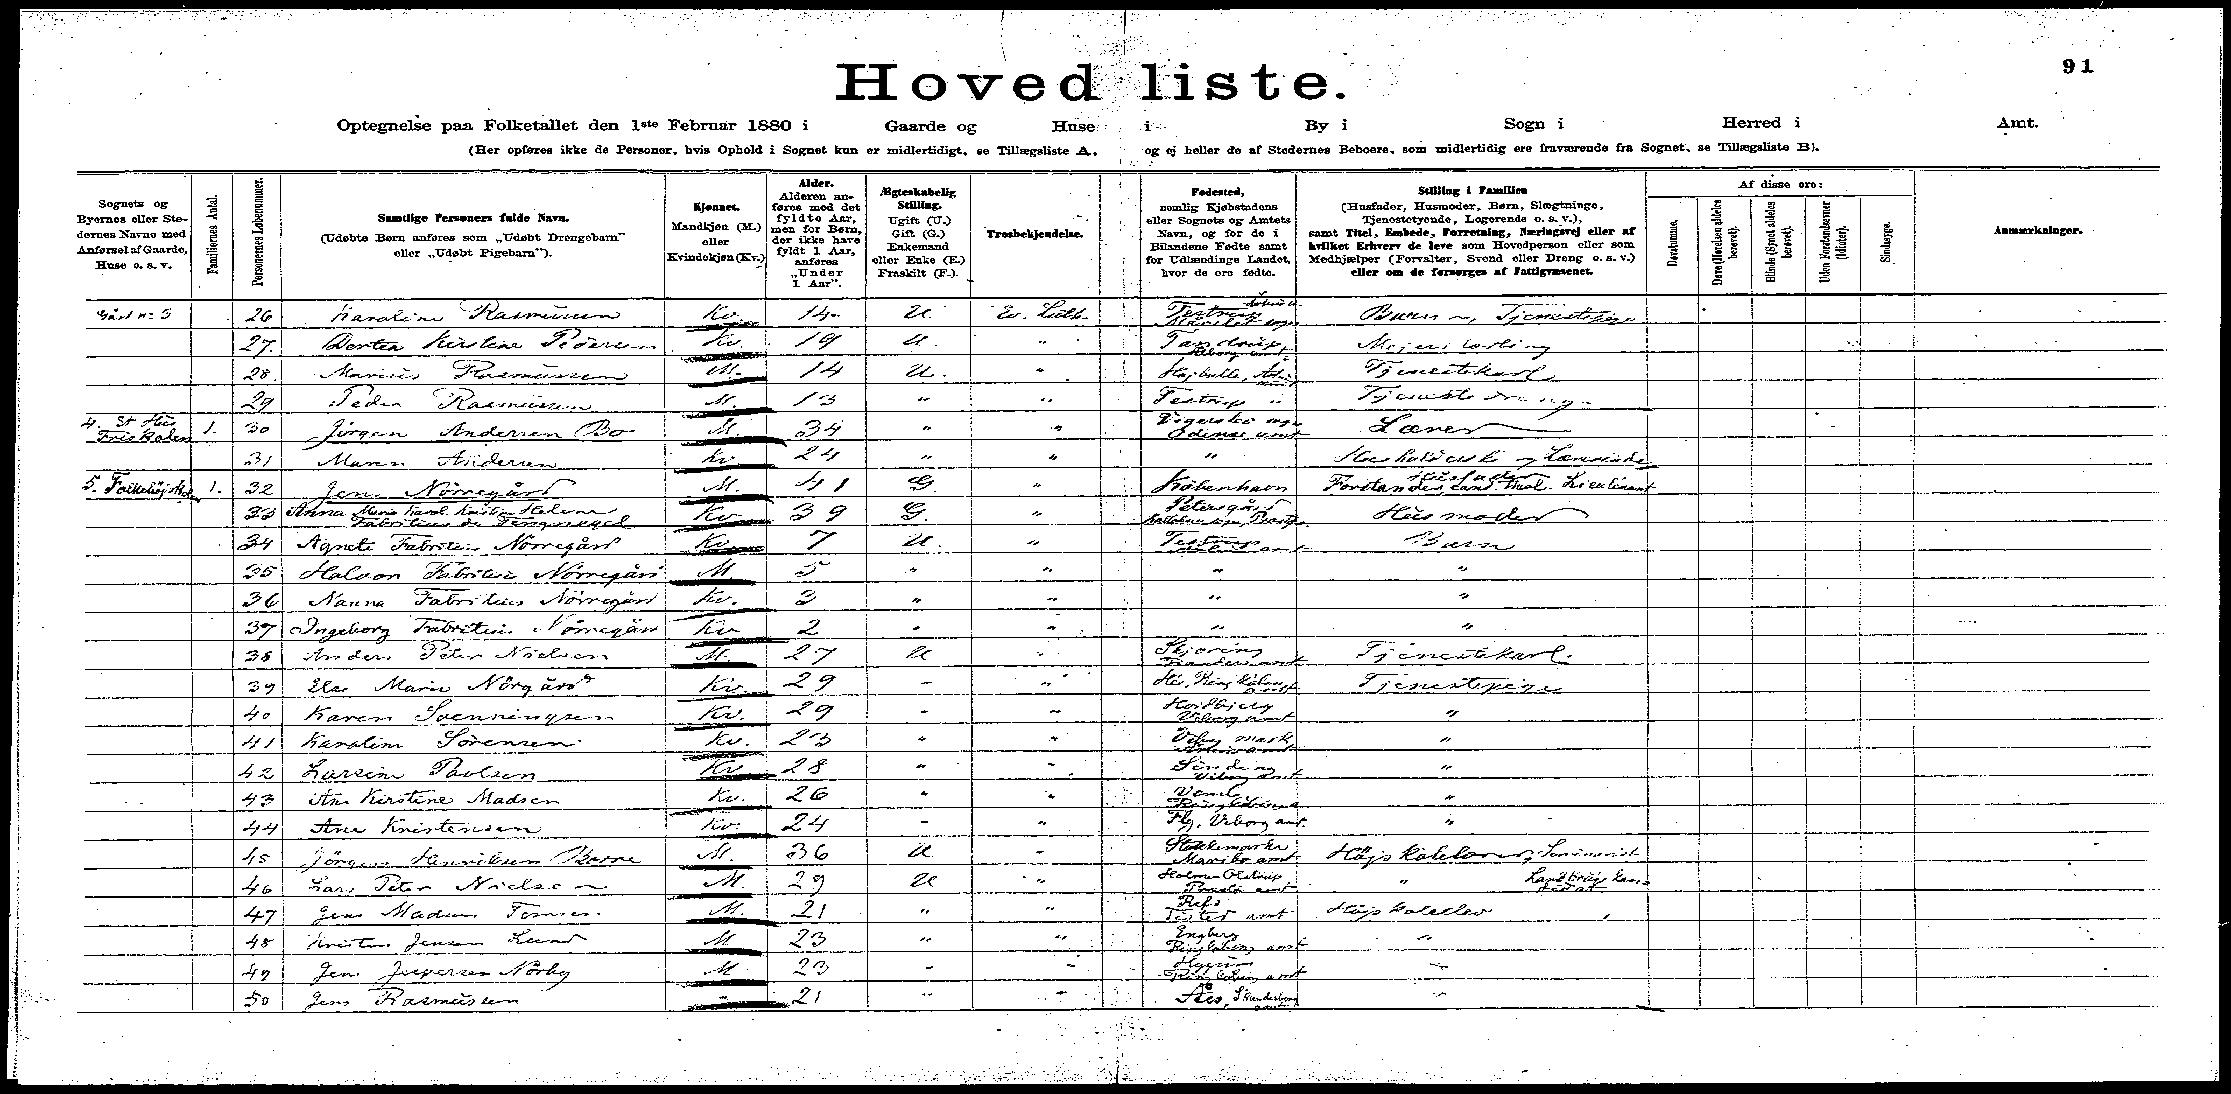 91
Hoved liste.
Optegnelse paa Folketallet den 1ste Februar 1880 i Gaarde og Huse i By i Sogn i Herred i Amt.
(Her opføres ikke de Personer, hvis Ophold i Sognet kun er midlertidigt, se Tillægsliste A, og ej heller de af Stedernes Beboere, som midlertidig ere fraværende fra Sognet, se Tillægsliste B).
Sognets og Byernes eller Stedernes Navne med Anførsel af Gaarde, Huse o. s. v.
Familiernes Antal.
Personernes Løbenummer.
Samtlige Personers fulde Navn.
(Udøbte Børn anføres som „Udøbt Drengebarn" eller „Udøbt Pigebarn").
Kjønnet.
Mandkjøn (M.) eller Kvindekjøn (Kv.)
Alder.
Alderen anføres med det fyldte Aar, men for Børn, der ikke have fyldt 1 Aar, anføres „Under 1 Aar".
Ægteskabelig Stilling.
Ugift (U.) Gift (G.) Enkemand eller Enke (E.) Fraskilt (F.).
Trosbekjendelse.
Fødested,
nemlig Kjøbstadens eller Sognets og Amtets Navn, og for de i Bilandene Fødte samt for Udlændinge Landet, hvor de ere fødte.
Stilling i Familien
(Husfader, Husmoder, Børn, Slægtninge, Tjenestetyende, Logerende o. s. v.), samt Titel, Embede, Forretning, Næringsvej eller af hvilket Erhverv de leve som Hovedperson eller som Medhjælper (Forvalter, Svend eller Dreng o. s. v.) eller om de forsørges af Fattigvæsenet.
Af disse ere:
Døvstumme.
Døve (Hørelsen aldeles berøvet).
Blinde (Synet aldeles berøvet).
Uden Forstandsevner (Idioter).
Sindssyge.
Anmærkninger.
Gård no 3 26 Karoline Rasmussen Kv. 14 U Ev. Luth. Testrup Tjenestepige
27. Dortea Kirstine Pedersen Kv. 19 U. " Viborg amt
28. Marius Rasmussen M. 14 U. " Tjenestekarl
29 Peder Rasmussen M. 13 " " Testrup " Tjenestedreng
4. Et Hus Friskolen 1. 30 Jørgen Andersen Bo M. 34 " " Odense amt Lærer
31 Maren Andersen Kv 24 " " "
5. Folkehøjskolen 1. 32 Jens Nörregård M. 41 G. " København Husfader Forstander, cand. theol. Lieutenant
33 Anna Marie Karol. Kirstine Helene Fabritius de Tengnagel Kv. 39 G. " Petersgård Husmoder
34 Agnete Fabritius Nörregård Kv. 7 U. " Testrup Barn
35 Halvor Fabritius Nörregård M. 5 " " " "
36 Nanna Fabritius Nörregård Kv. 3 " " " "
37 Ingeborg Fabritius Nörregård Kv 2 " " " "
38 Anders Peter Nielsen M. 27 U " Skjøring Randers amt Tjenestekarl.
39 Else Marie Nörgård Kv. 29 " " Tjenestepige
40 Karen Svenningsen Kv. 29 " " Viborg amt "
41 Karoline Sörensen Kv. 23 " " Viby mark "
42 Larsine Paulsen Kv 28 " " Sinding Viborg amt "
43 Ane Kirstine Madsen Kv. 26 " " "
44 Ane Kristensen Kv. 24 " " Fly, Viborg amt. "
45 Jörgen Henriksen M. 36 U " Stokkemarke Maribo amt Höjskolelærer, Seminarist
46 Lars Peter Nielsen M. 29 U " Holme Olstrup Præstø amt "
47 Jens Madsen M. 21 " " Refs Tisted amt Höjskoleelev
48 Kristen Jensen Lund M 23 " " Engbjerg Ringköbing amt "
49 Jens Jespersen Nörby M 23 " " Hjerm Ringköbing amt "
50 Jens Rasmussen " 21 " " Ås, Skanderborg amt "